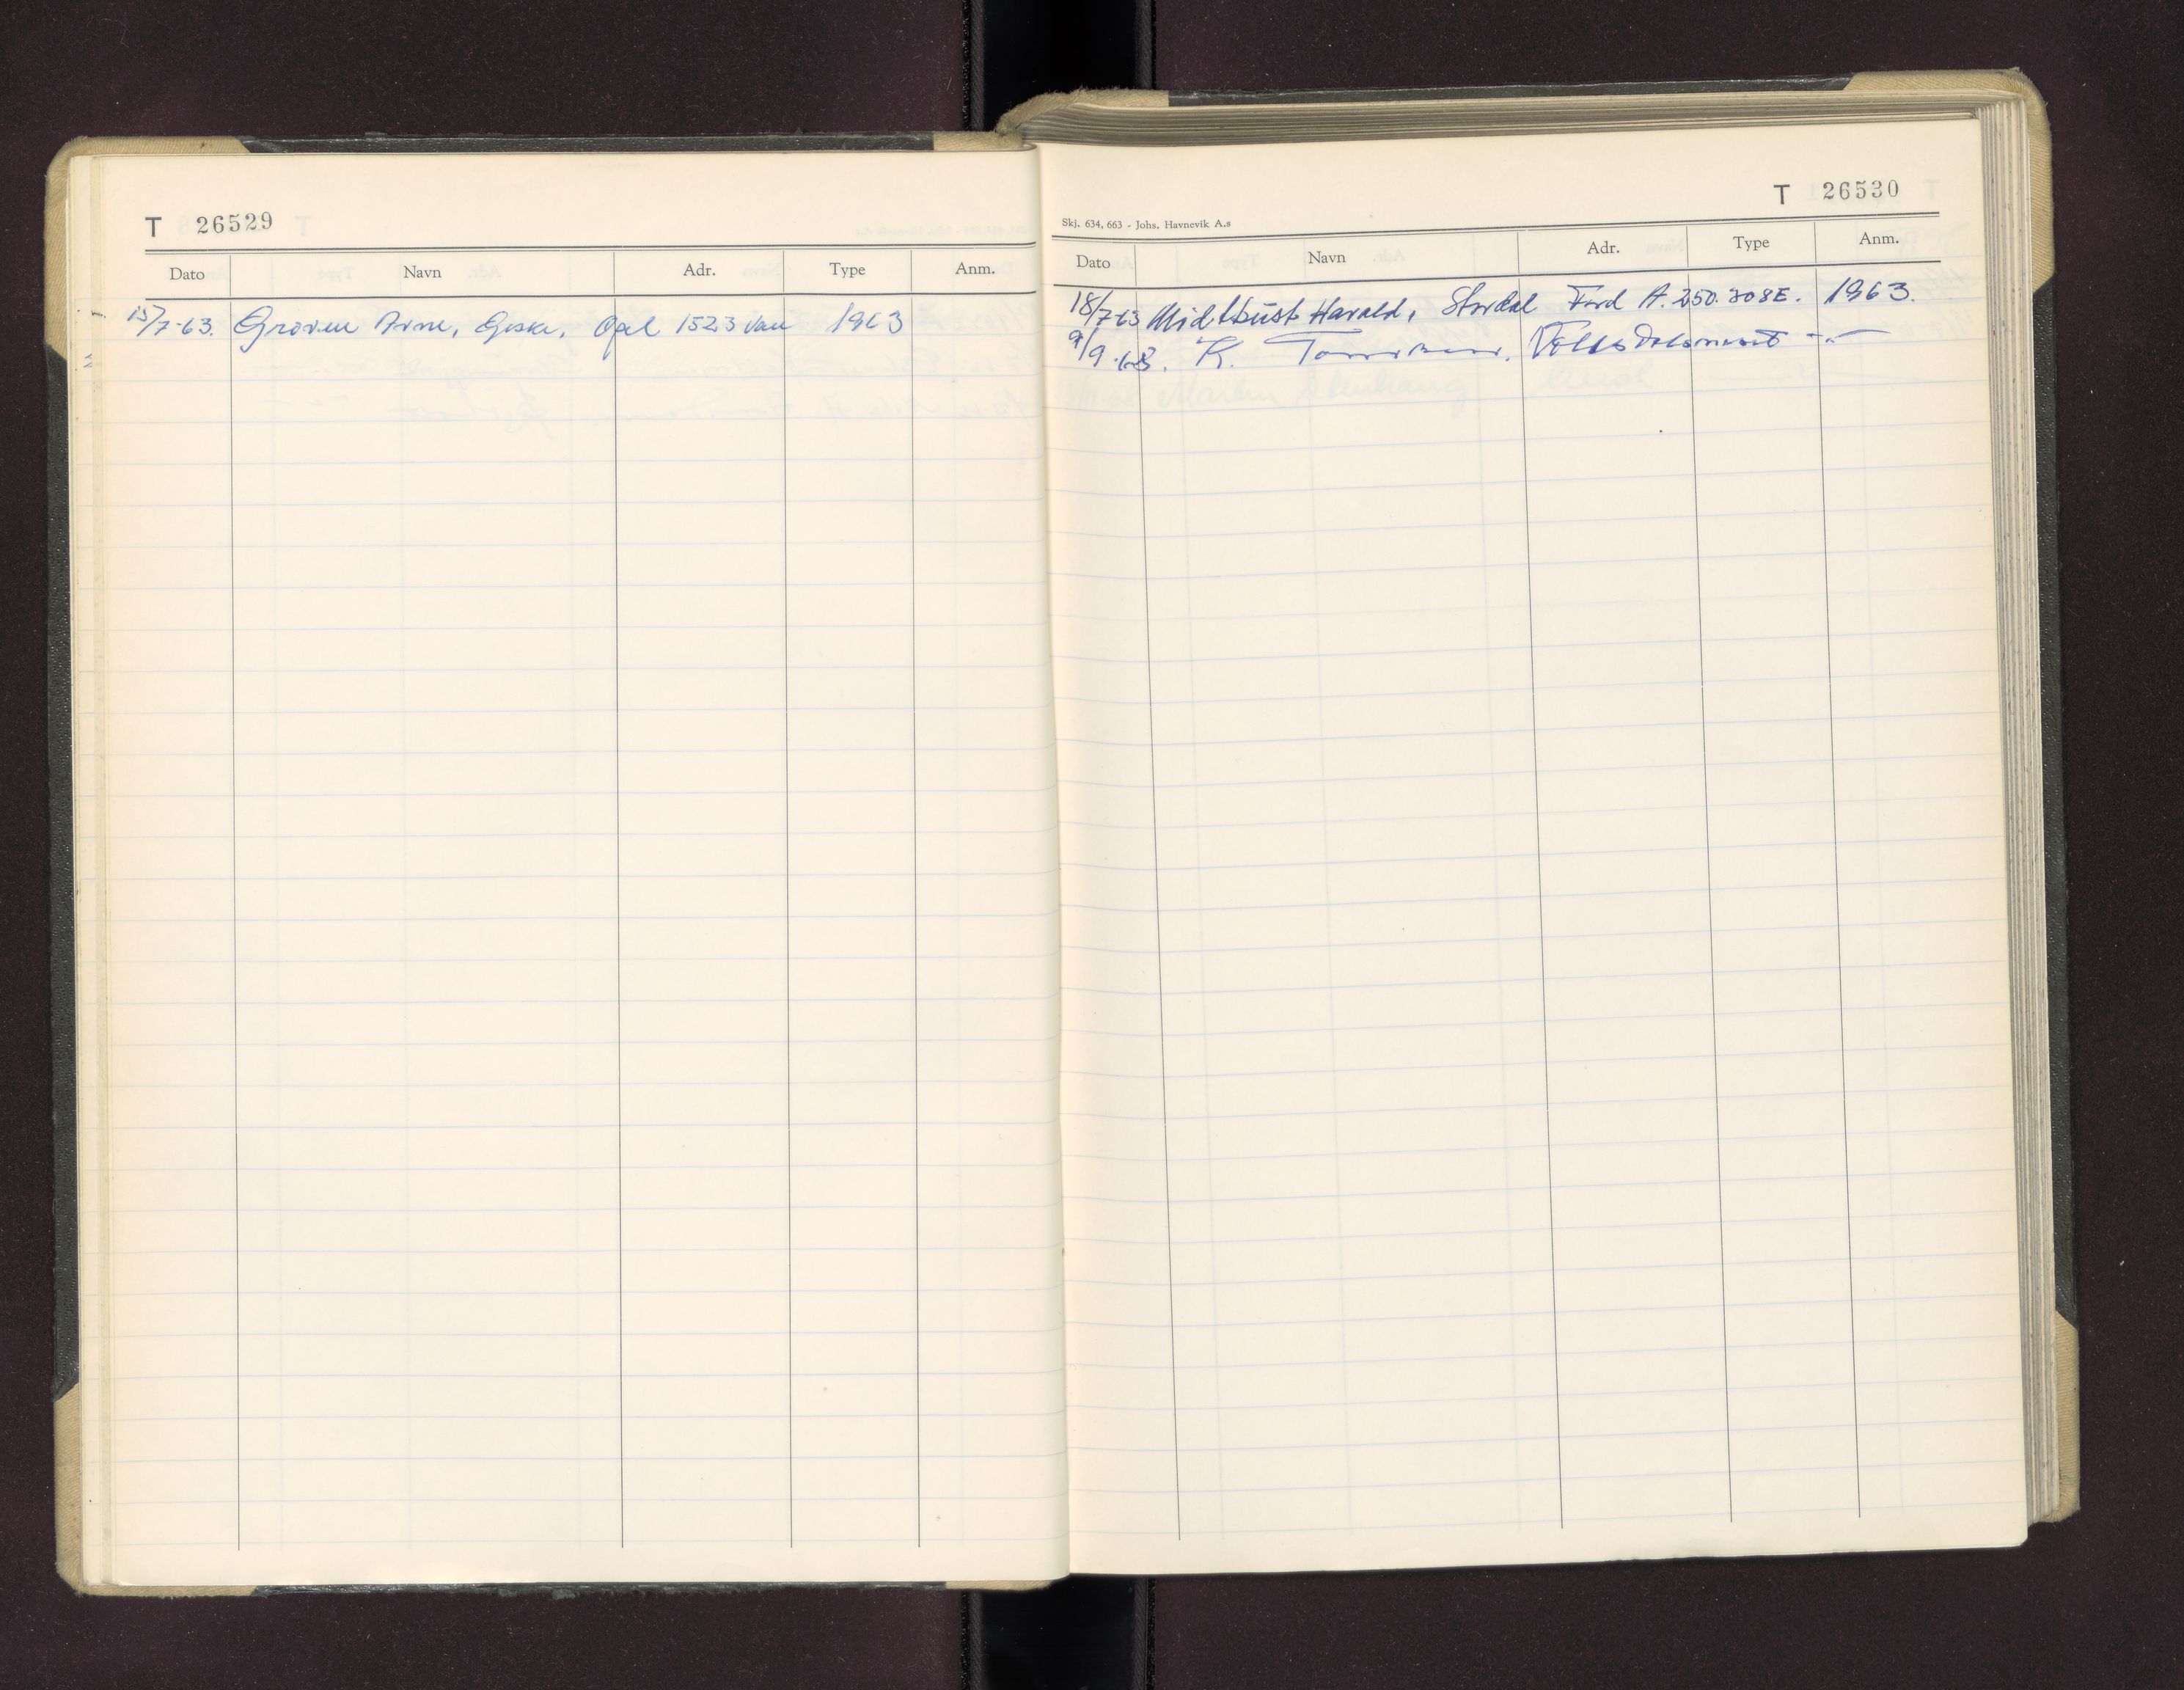 T 26529
Dato Navn Adr. Type Anm.
15/7-63. Groven Arne, Giske, Opel 1523 Van 1963
T 26530
Skj. 634, 663 - Johs. Havnevik A.s
Dato Navn Adr. Type Anm.
18/7-63 Midtbust Harald, Stordal Ford A. 250.308E. 1963.
9/9-63. K.